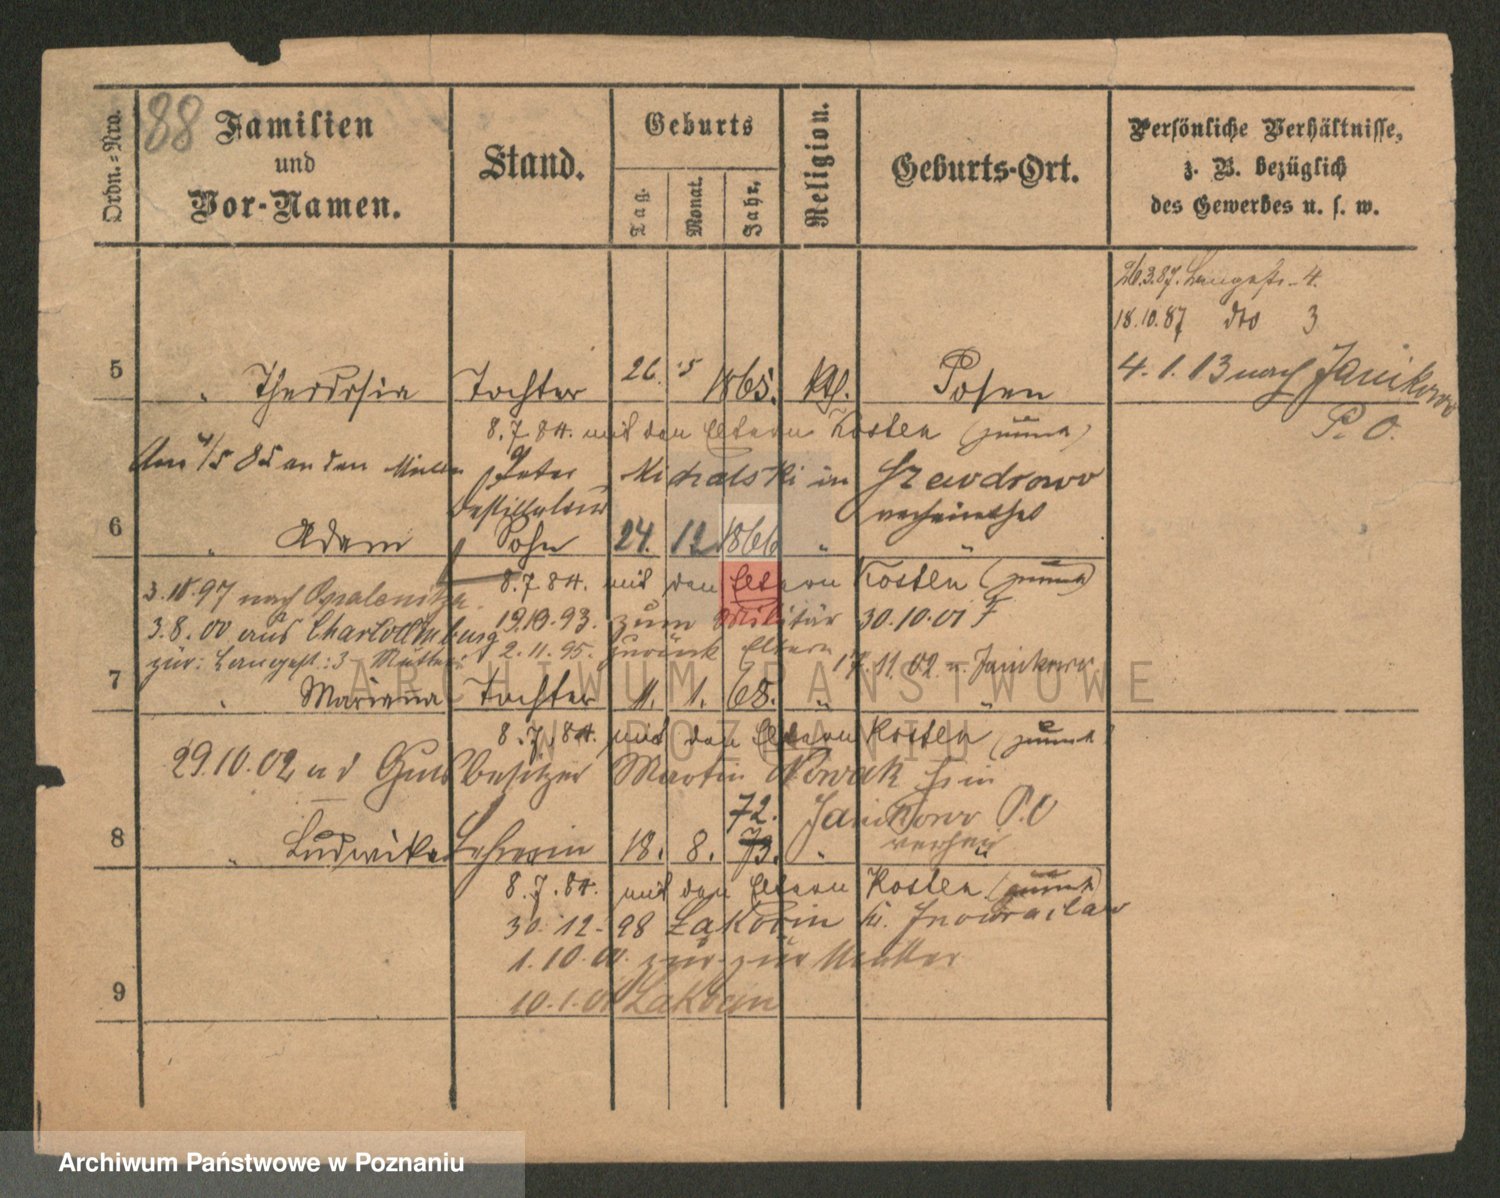 Ordn.=Nro.
88
Familien
und
Vor-Namen.
Stand.
Geburts
Tag.
Monat.
Jahr.
Religion.
Geburts-Ort.
Persönliche Verhältnisse,
z. B. bezüglich
des Gewerbes u. s. w.
26.3.87. Langestr. 4.
18.10.87 dto 3
4.1.13 nach Janikowo
P. O.
5 " Theodosia Tochter 26. 5 1865. Kth. Posen
8.7.84. mit den Eltern Kosten
Am 4/5 85 an den Peter Michalski in Szewdrowo
Destillateur verheirathet
6 " Adam Sohn 24. 12 1866 " "
8.7.84. mit den Eltern Kosten
3.10.97 nach Opalenitza 19.10.93. zum Militär 30.10.01
3.8.00 aus Charlottenburg 2.11.95. zurück Eltern
zur: Langest.: 3 Mutter 17.11.02 n. Janikowo
7 " Marianna Tochter 11. 1. 68. " "
8.7.84. mit den Eltern Kosten
29.10.02 a d Gutsbesitzer Martin Nowak in
Janikowo P.O
72.
8 " Ludwika Lehrerin 18. 8. 73. " "
8.7.84. mit den Eltern Kosten
30.12.98 Lakocin Kr. Inowraclaw
1.10.00 zur Mutter
9
10.1.01 Lakocin
ARCHIWUM PAŃSTWOWE
W POZNANIU
Archiwum Państwowe w Poznaniu